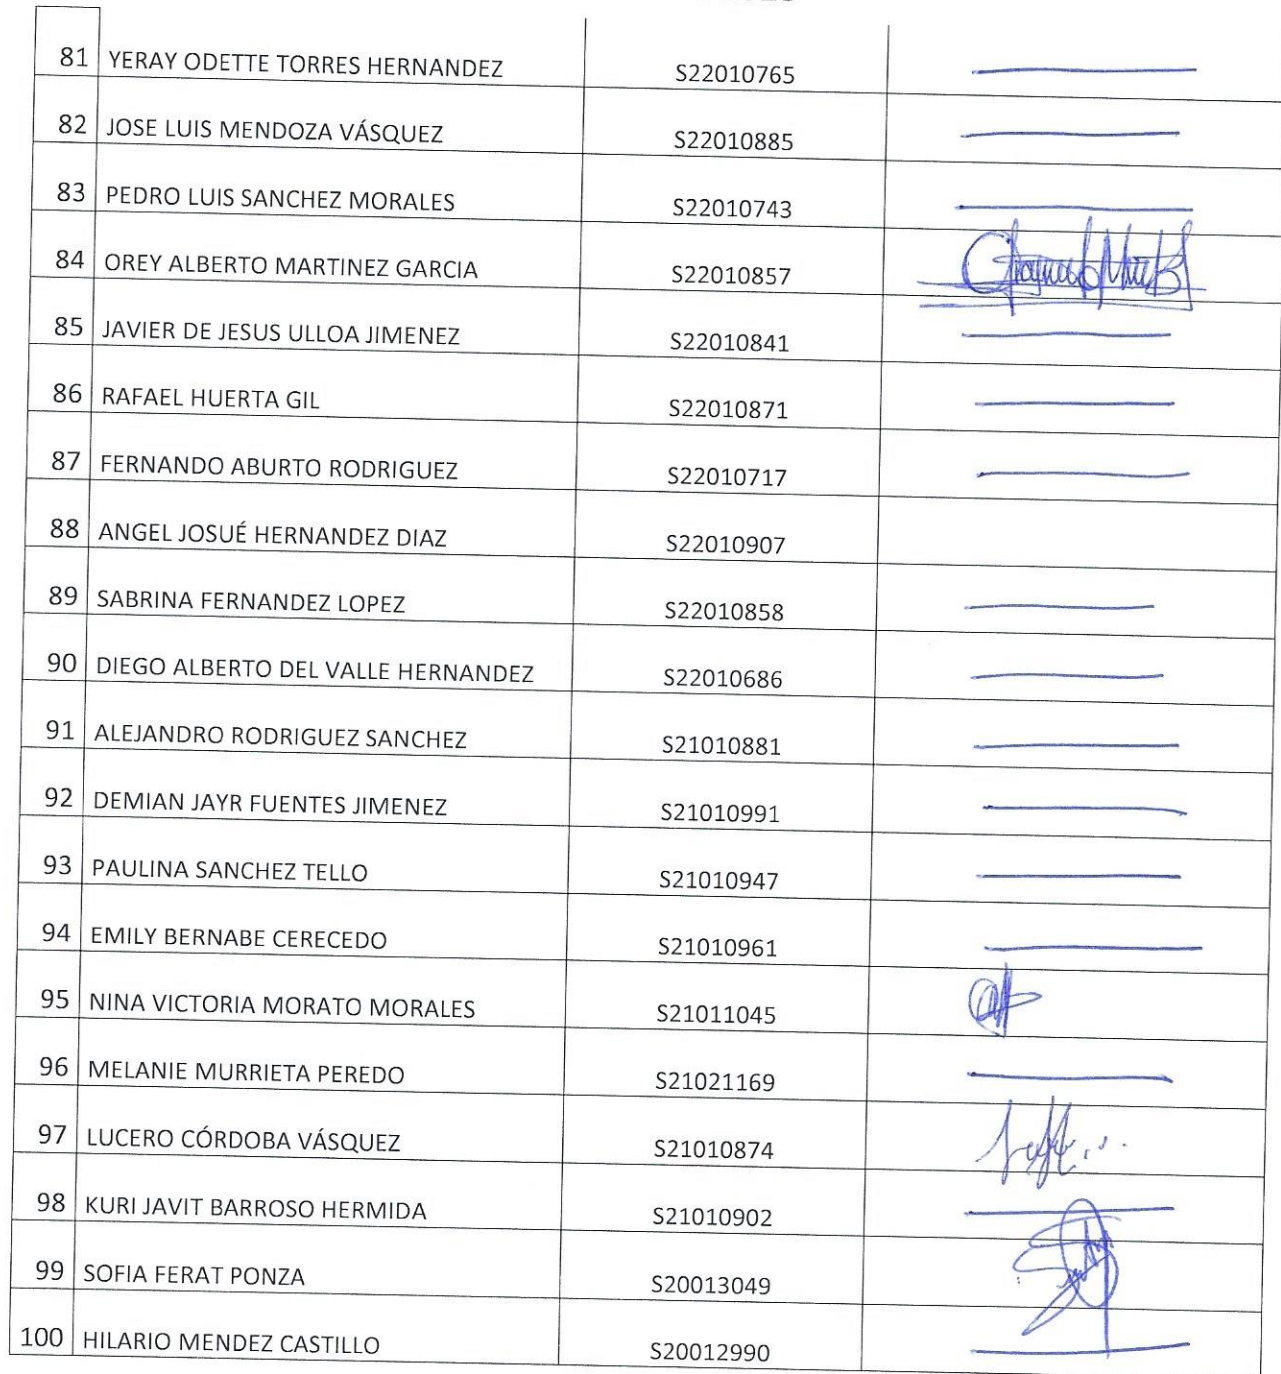 81 YERAY ODETTE TORRES HERNANDEZ S22010765
82 JOSE LUIS MENDOZA VÁSQUEZ S22010885
83 PEDRO LUIS SANCHEZ MORALES S22010743
84 OREY ALBERTO MARTINEZ GARCIA S22010857
85 JAVIER DE JESUS ULLOA JIMENEZ S22010841
86 RAFAEL HUERTA GIL S22010871
87 FERNANDO ABURTO RODRIGUEZ S22010717
88 ANGEL JOSUÉ HERNANDEZ DIAZ S22010907
89 SABRINA FERNANDEZ LOPEZ S22010858
90 DIEGO ALBERTO DEL VALLE HERNANDEZ S22010686
91 ALEJANDRO RODRIGUEZ SANCHEZ S21010881
92 DEMIAN JAYR FUENTES JIMENEZ S21010991
93 PAULINA SANCHEZ TELLO S21010947
94 EMILY BERNABE CERECEDO S21010961
95 NINA VICTORIA MORATO MORALES S21011045
96 MELANIE MURRIETA PEREDO S21021169
97 LUCERO CÓRDOBA VÁSQUEZ S21010874
98 KURI JAVIT BARROSO HERMIDA S21010902
99 SOFIA FERAT PONZA S20013049
100 HILARIO MENDEZ CASTILLO S20012990